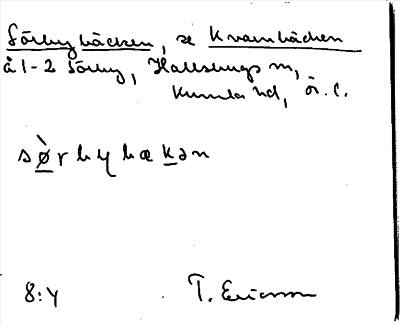 Sörbybäcken, se Kvarnbäcken
å 1-2 Sörby, Hallsbergs sn,
Kumla hd, Ör. l.
sø̀rbybækən
8:4
T. Ericsson